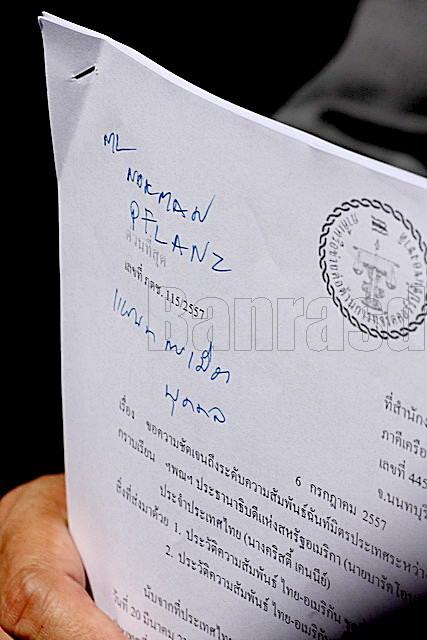 ML
NORMAN
PFLANZ
ด่วนที่สุด
เลขที่ ภตช. 115/2557
Banrasd
ที่สำนักง
ภาคีเครือ
เลขที่ 445
จ.นนทบุรี
6 กรกฎาคม 2557
เรื่อง ขอความชัดเจนถึงระดับความสัมพันธ์ฉันท์มิตรประเทศระหว่าง
กราบเรียน ฯพณฯ ประธานาธิบดีแห่งสหรัฐอเมริกา (นายบารัคโอบ
ประจำประเทศไทย (นางคริสตี้ เคนนีย์)
สิ่งที่ส่งมาด้วย 1. ประวัติความสัมพันธ์ ไทย-อเมริกัน ชุด
2. ประวัติความสัมพันธ์ ไทย-อเมริกัน
นับจากที่ประเทศไทย
วันที่ 20 มีนาคม